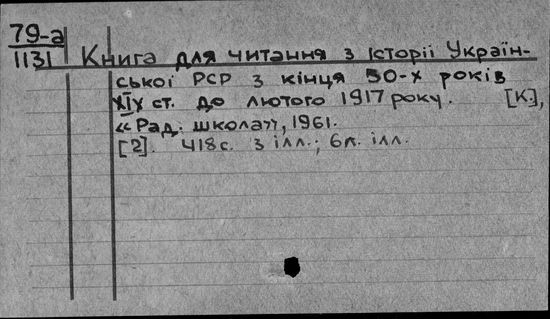 79-а
1131 Книга для читання з історії Україн-
ської РСР з кінця 50-х років
XIX ст. до лютого 1917 року. [К.],
«Рад. школа», 1961.
[2]. 418 с. з ілл.; 6 л. ілл.